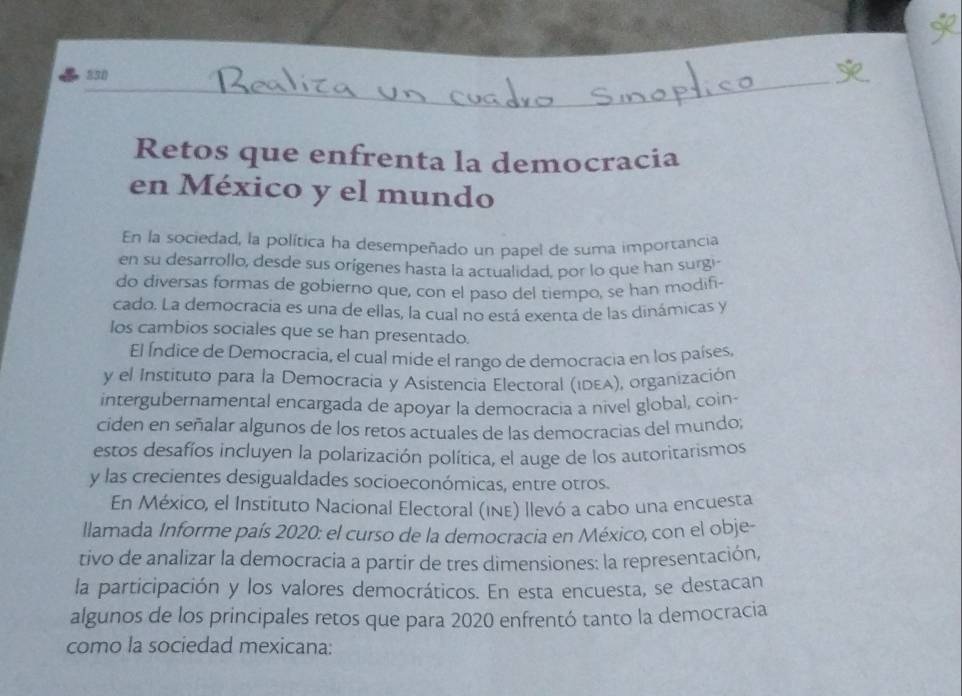 Realiza un cuadro sinoptico
Retos que enfrenta la democracia
en México y el mundo
En la sociedad, la política ha desempeñado un papel de suma importancia
en su desarrollo, desde sus orígenes hasta la actualidad, por lo que han surgi-
do diversas formas de gobierno que, con el paso del tiempo, se han modifi-
cado. La democracia es una de ellas, la cual no está exenta de las dinámicas y
los cambios sociales que se han presentado.
El Índice de Democracia, el cual mide el rango de democracia en los países,
y el Instituto para la Democracia y Asistencia Electoral (IDEA), organización
intergubernamental encargada de apoyar la democracia a nivel global, coin-
ciden en señalar algunos de los retos actuales de las democracias del mundo;
estos desafíos incluyen la polarización política, el auge de los autoritarismos
y las crecientes desigualdades socioeconómicas, entre otros.
En México, el Instituto Nacional Electoral (INE) llevó a cabo una encuesta
llamada Informe país 2020: el curso de la democracia en México, con el obje-
tivo de analizar la democracia a partir de tres dimensiones: la representación,
la participación y los valores democráticos. En esta encuesta, se destacan
algunos de los principales retos que para 2020 enfrentó tanto la democracia
como la sociedad mexicana: